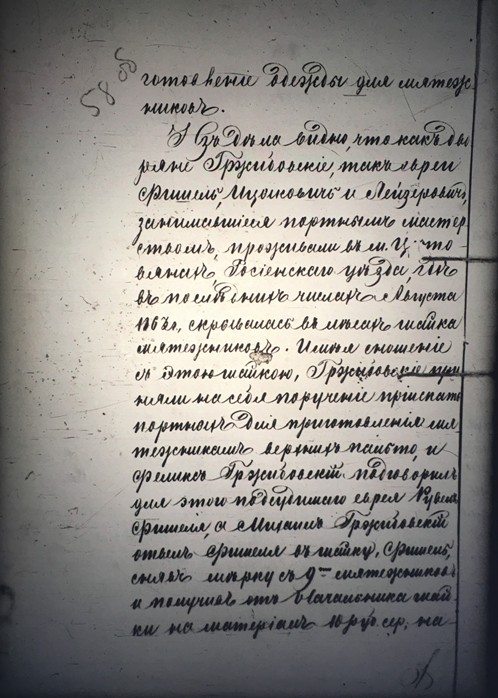 58 об
готовленіе одежды для мятеж-
никовъ.
Изъ дѣла видно, что какъ дво-
ряне Гржибовскіе, такъ евреи
Фишель, Ицковичъ и Лейдеровичъ,
занимавшіеся портнымъ мастер-
ствомъ, проживали въ м. Цыто-
вянахъ Росіенскаго уѣзда, гдѣ
въ послѣднихъ числахъ Августа
1863 г., скрывалась въ лѣсахъ шайка
мятежниковъ. Имѣя сношеніе
съ этою шайкою, Гржибовскіе при-
няли на себя порученіе пріискать
портныхъ для приготовленія мя-
тежникамъ верхнихъ пальто, и
Феликсъ Гржибовскій подговорилъ
для этого подсудимаго еврея
Фишеля, а Михаилъ Гржибовскій
Фишеля въ шайку, Фишель,
снявъ мѣрку съ 9ти мятежниковъ
и получивъ отъ начальника шай-
ки на матеріалъ руб. сер., на-